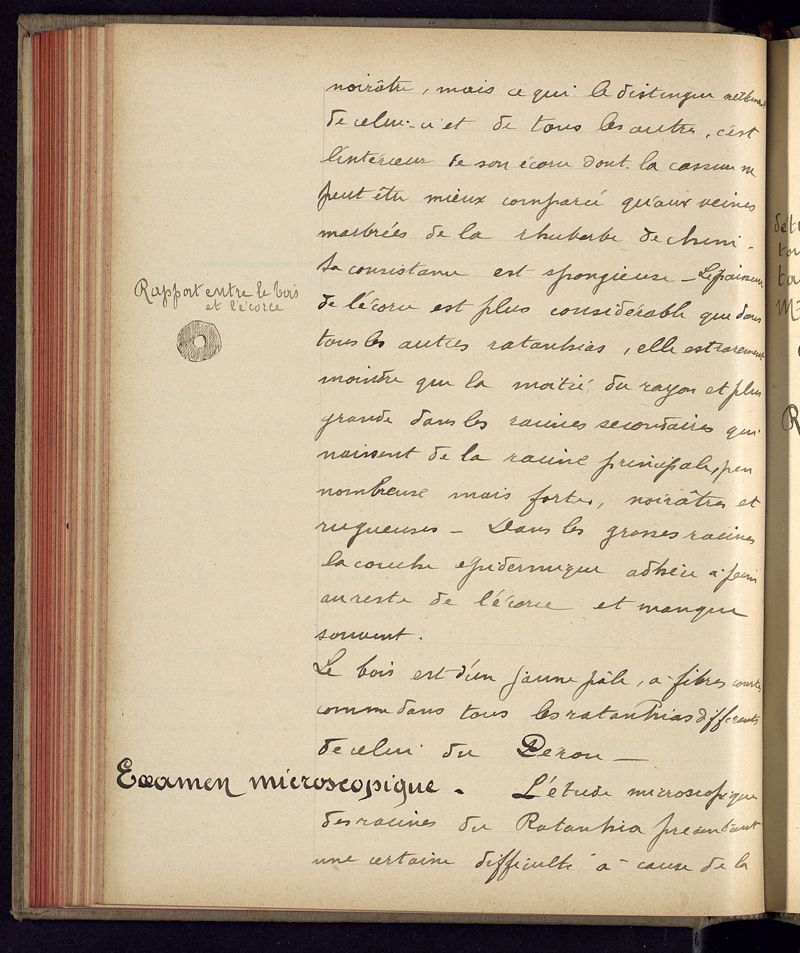 noirâtre, mais ce qui le distingue nettement
de celui-ci et de tous les autres, c'est
l'intérieur de son écorce dont la cassure ne
peut être mieux comparée qu'aux veines
marbrées de la rhubarbe de chine -
Sa consistance est spongieuse - L'épaisseur
Rapport entre le bois
et l'écorce
de l'écorce est plus considérable que dans
tous les autres ratanhias, elle est rarement
moindre que la moitié du rayon et plus
grande dans les racines secondaires qui
naissent de la racine principale, peu
nombreuse mais fortes, noirâtres et
rugueuses - Dans les grosses racines
la couche epidermique adhère à peine
au reste de l'écorce et manque
souvent.
Le bois est d'un jaune pâle, à fibres courtes
comme dans tous les ratanhias différents
de celui du Perou -
Examen microscopique. L'étude microscopique
des racines du Ratanhia présentant
une certaine difficulté à cause de la
dét
tou
M
R